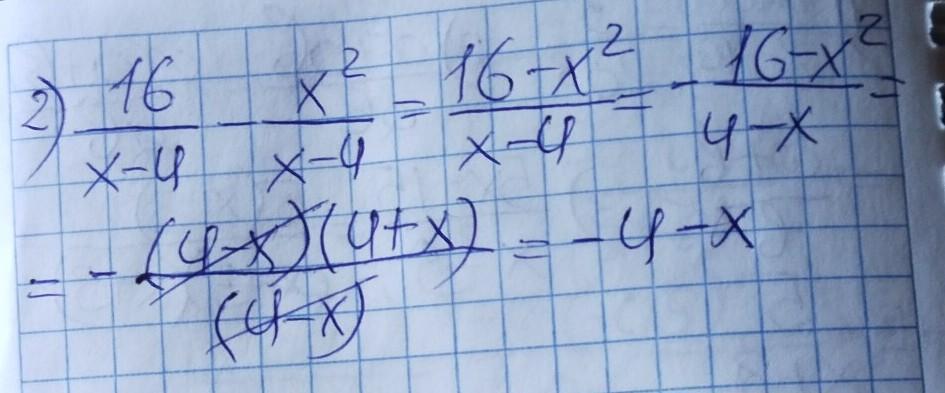 2) 16/(x-4) - x²/(x-4) = (16-x²)/(x-4) = - (16-x²)/(4-x) =
= - (4-x)(4+x)/(4-x) = -4-x